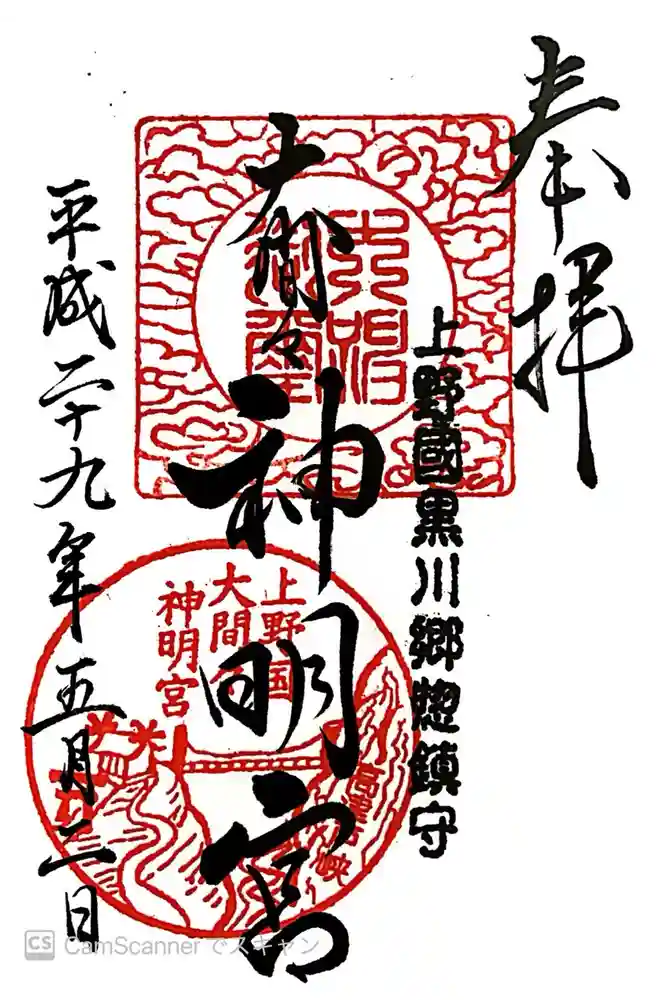 奉拝
上野國黒川郷惣鎮守
大間々神明宮
上野国
大間々
神明宮
高津戸峡
平成二十九年五月二日
CS CamScanner でスキャン